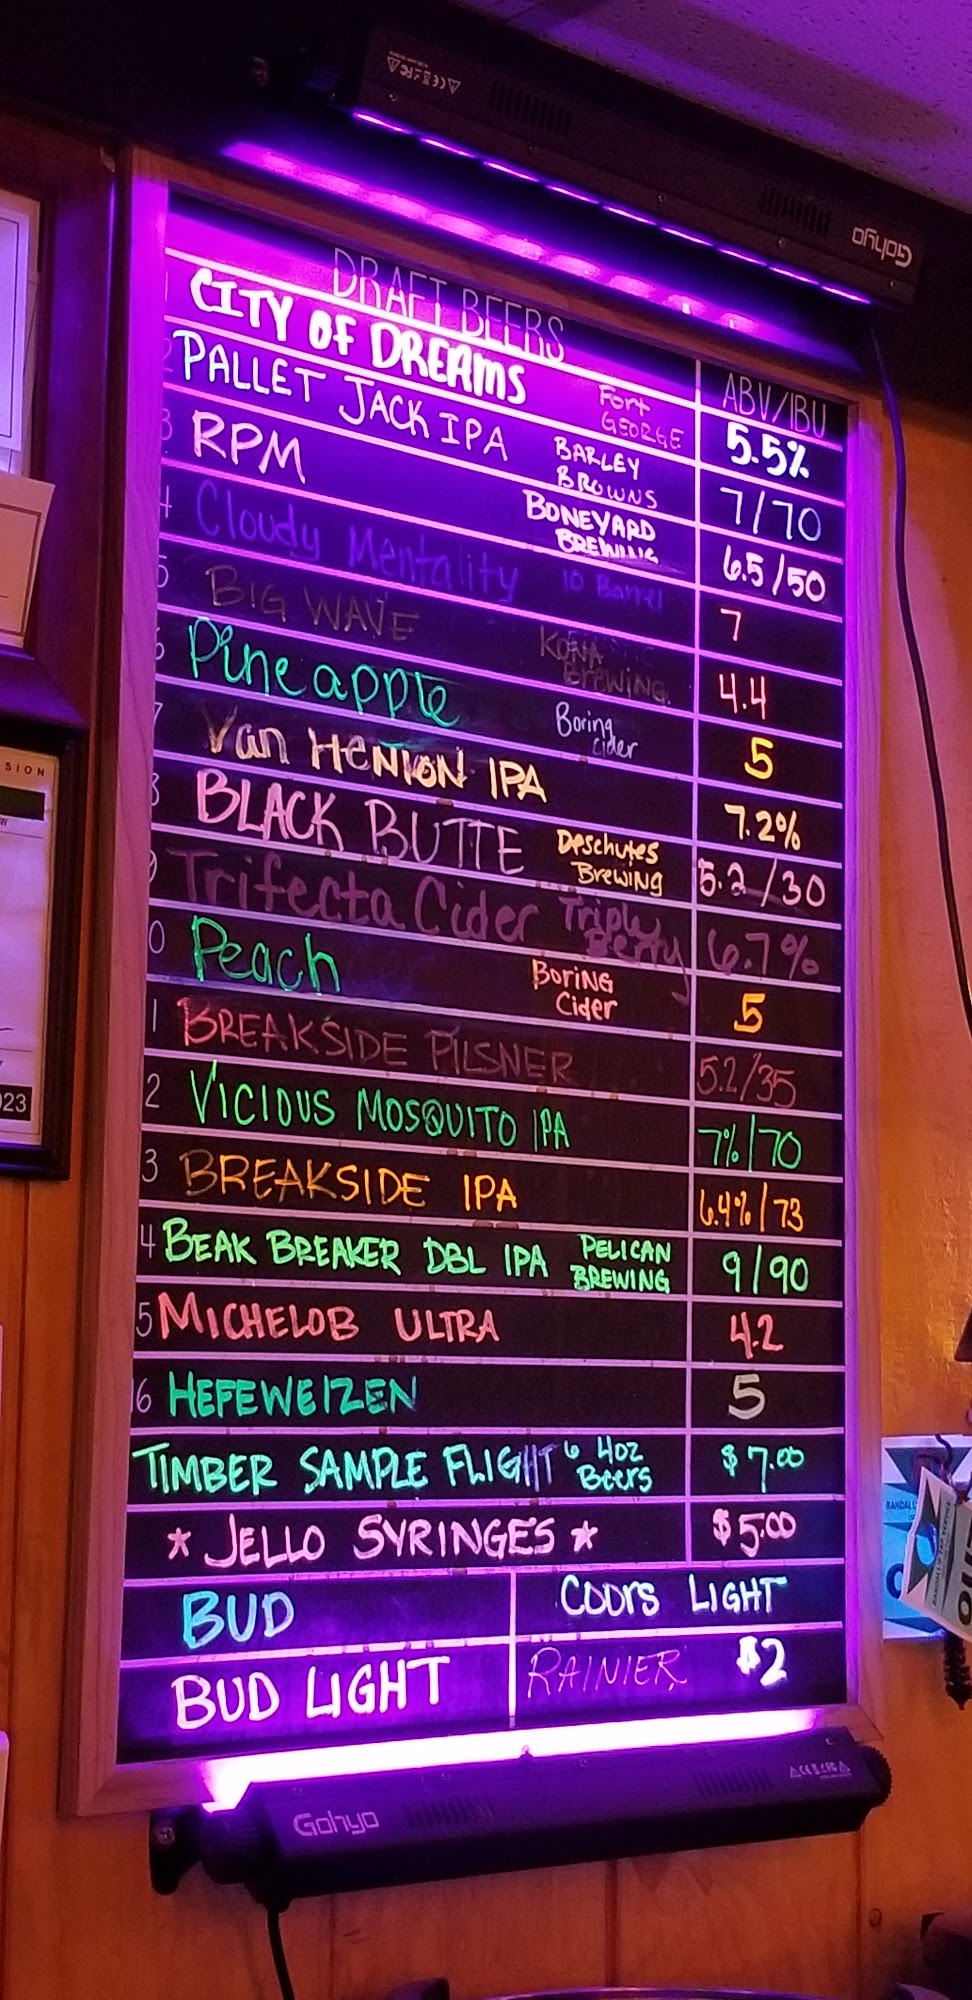 Gohyo
DRAFT BEERS
ABV/IBU
CITY OF DREAMS Fort GEORGE 5.5%
2 PALLET JACK IPA BARLEY BROWNS 7/70
3 RPM BONEYARD BREWING 6.5/50
4 Cloudy Mentality 10 Barrel 7
5 BIG WAVE KONA Brewing 4.4
6 Pineapple Boring Cider 5
7 Van HENION IPA 7.2%
8 BLACK BUTTE Deschutes Brewing 5.2/30
9 Trifecta Cider Triple Berry 6.7%
0 Peach BORING Cider 5
1 BREAKSIDE PILSNER 5.2/35
2 VICIOUS MOSQUITO IPA 7%/70
3 BREAKSIDE IPA 6.4%/73
4 BEAK BREAKER DBL IPA PELICAN BREWING 9/90
5 MICHELOB ULTRA 4.2
16 HEFEWEIZEN 5
TIMBER SAMPLE FLIGHT 6 4oz Beers $7.00
* JELLO SYRINGES * $5.00
BUD COORS LIGHT
BUD LIGHT RAINIER $2
Gohyo
SION
023